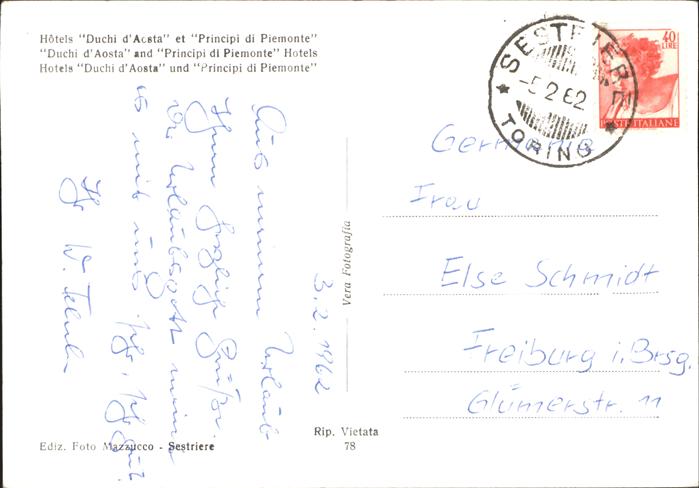 Hôtels "Duchi d'Aosta" et "Principi di Piemonte"
"Duchi d'Aosta" and "Principi di Piemonte" Hotels
Hotels "Duchi d'Aosta" und "Principi di Piemonte"
SESTRIERE
-5 2 62
TORINO
40
LIRE
POSTE ITALIANE
3.2.1962
Aus meinem Urlaub
Ihnen herzliche Grüße.
Der Urlaubsgott meint
es mit uns sehr, sehr gut.
Ihr W.
Vera Fotografia
Germania
Frau
Else Schmidt
Freiburg i. Brsg.
Glümerstr. 11
Rip. Vietata
Ediz. Foto Mazzucco - Sestriere
78